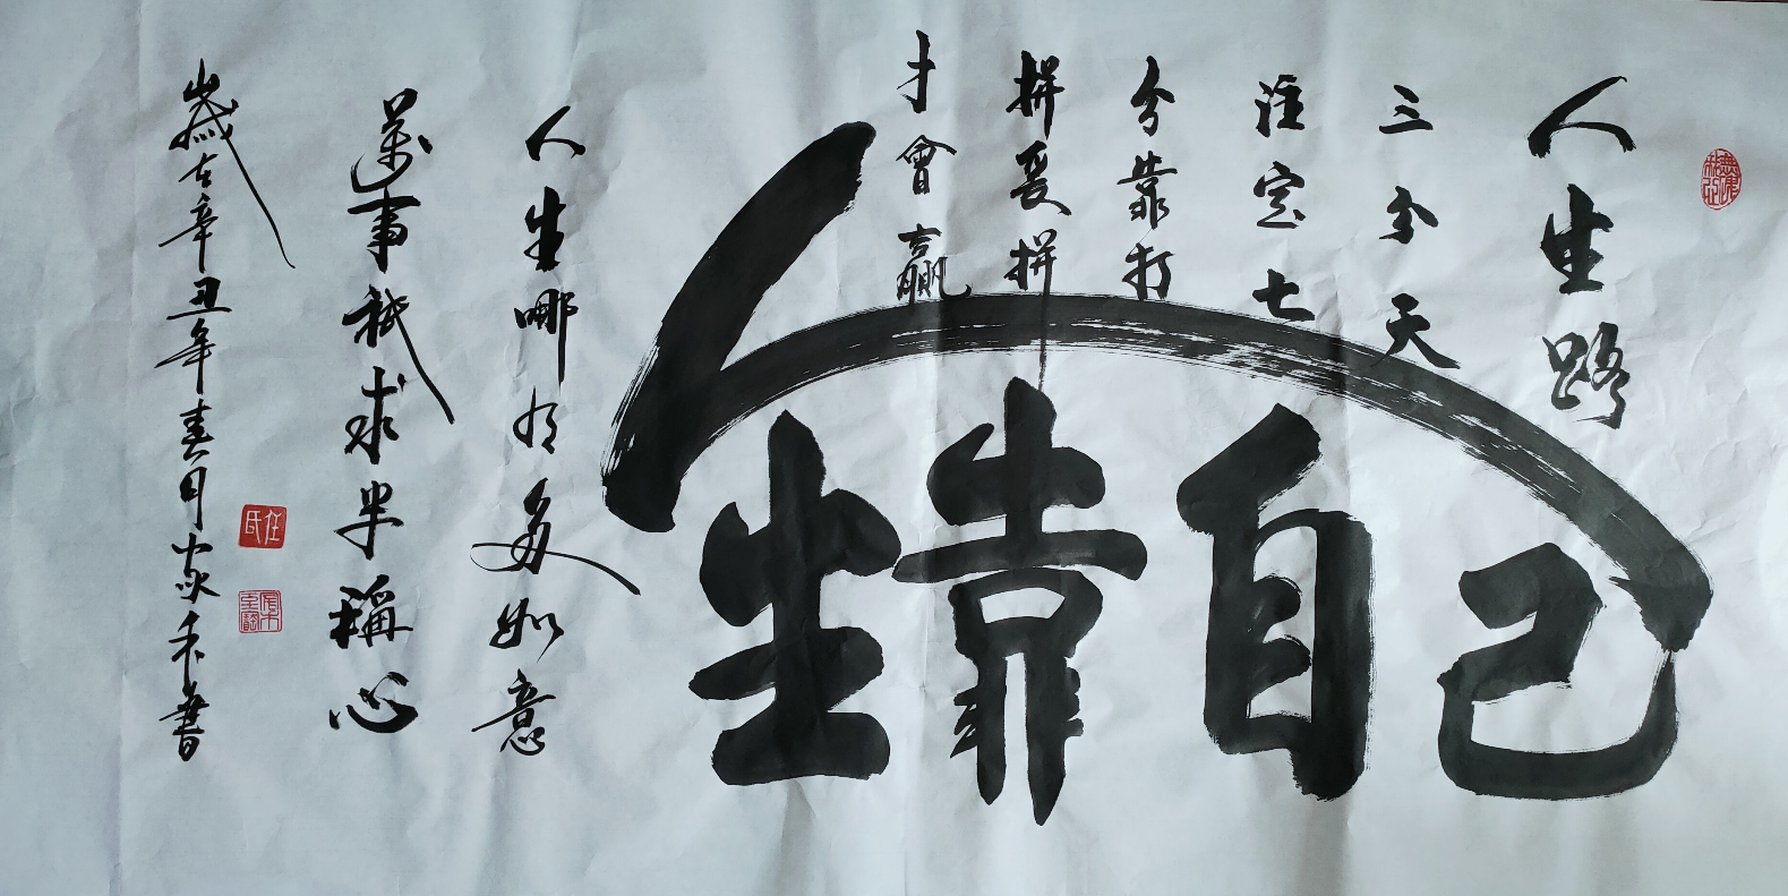 人生路
三分天
注定七
分靠打
拼爱拼
才會贏
人生靠自己
人生哪有多如意
萬事祇求半稱心
歲在辛丑年春月書
任氏